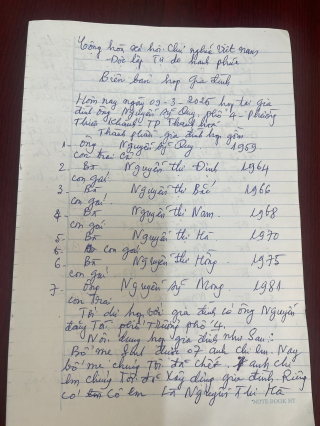 Cộng hòa xã hội Chủ nghĩa Việt nam
Độc lập Tự do hành phúc
Biên bản họp Gia đình
Hôm nay ngày 09-3-2025 họp tại gia
đình ông Nguyễn Sỹ Quý phố 4 - Phường
Khánh TP Thanh hóa
Thành phần gia đình họp gồm
1- ông Nguyễn Sỹ Quý 1959
con trai cả
2- Bà Nguyễn thị Định 1964
con gái
3- Bà Nguyễn thị Bắc 1966
con gái
4- Bà Nguyễn thị Nam 1968
con gái
5- Bà Nguyễn thị Hà 1970
con gái
6- Bà Nguyễn thị Hồng 1975
con gái
7- ông Nguyễn Sỹ Mong 1981
con trai
Tới dự họp với gia đình có ông Nguyễn
đăng Tới phố Trưởng phố 4.
Nội dung họp gia đình như Sau:
Bố mẹ Sinh được 07 anh chị em. Nay
bố mẹ chúng Tôi đã chết, anh chị
em chúng Tôi đã Xây dựng gia đình. Riêng
có Cô em Là Nguyễn Thị Hà
NOTE BOOK